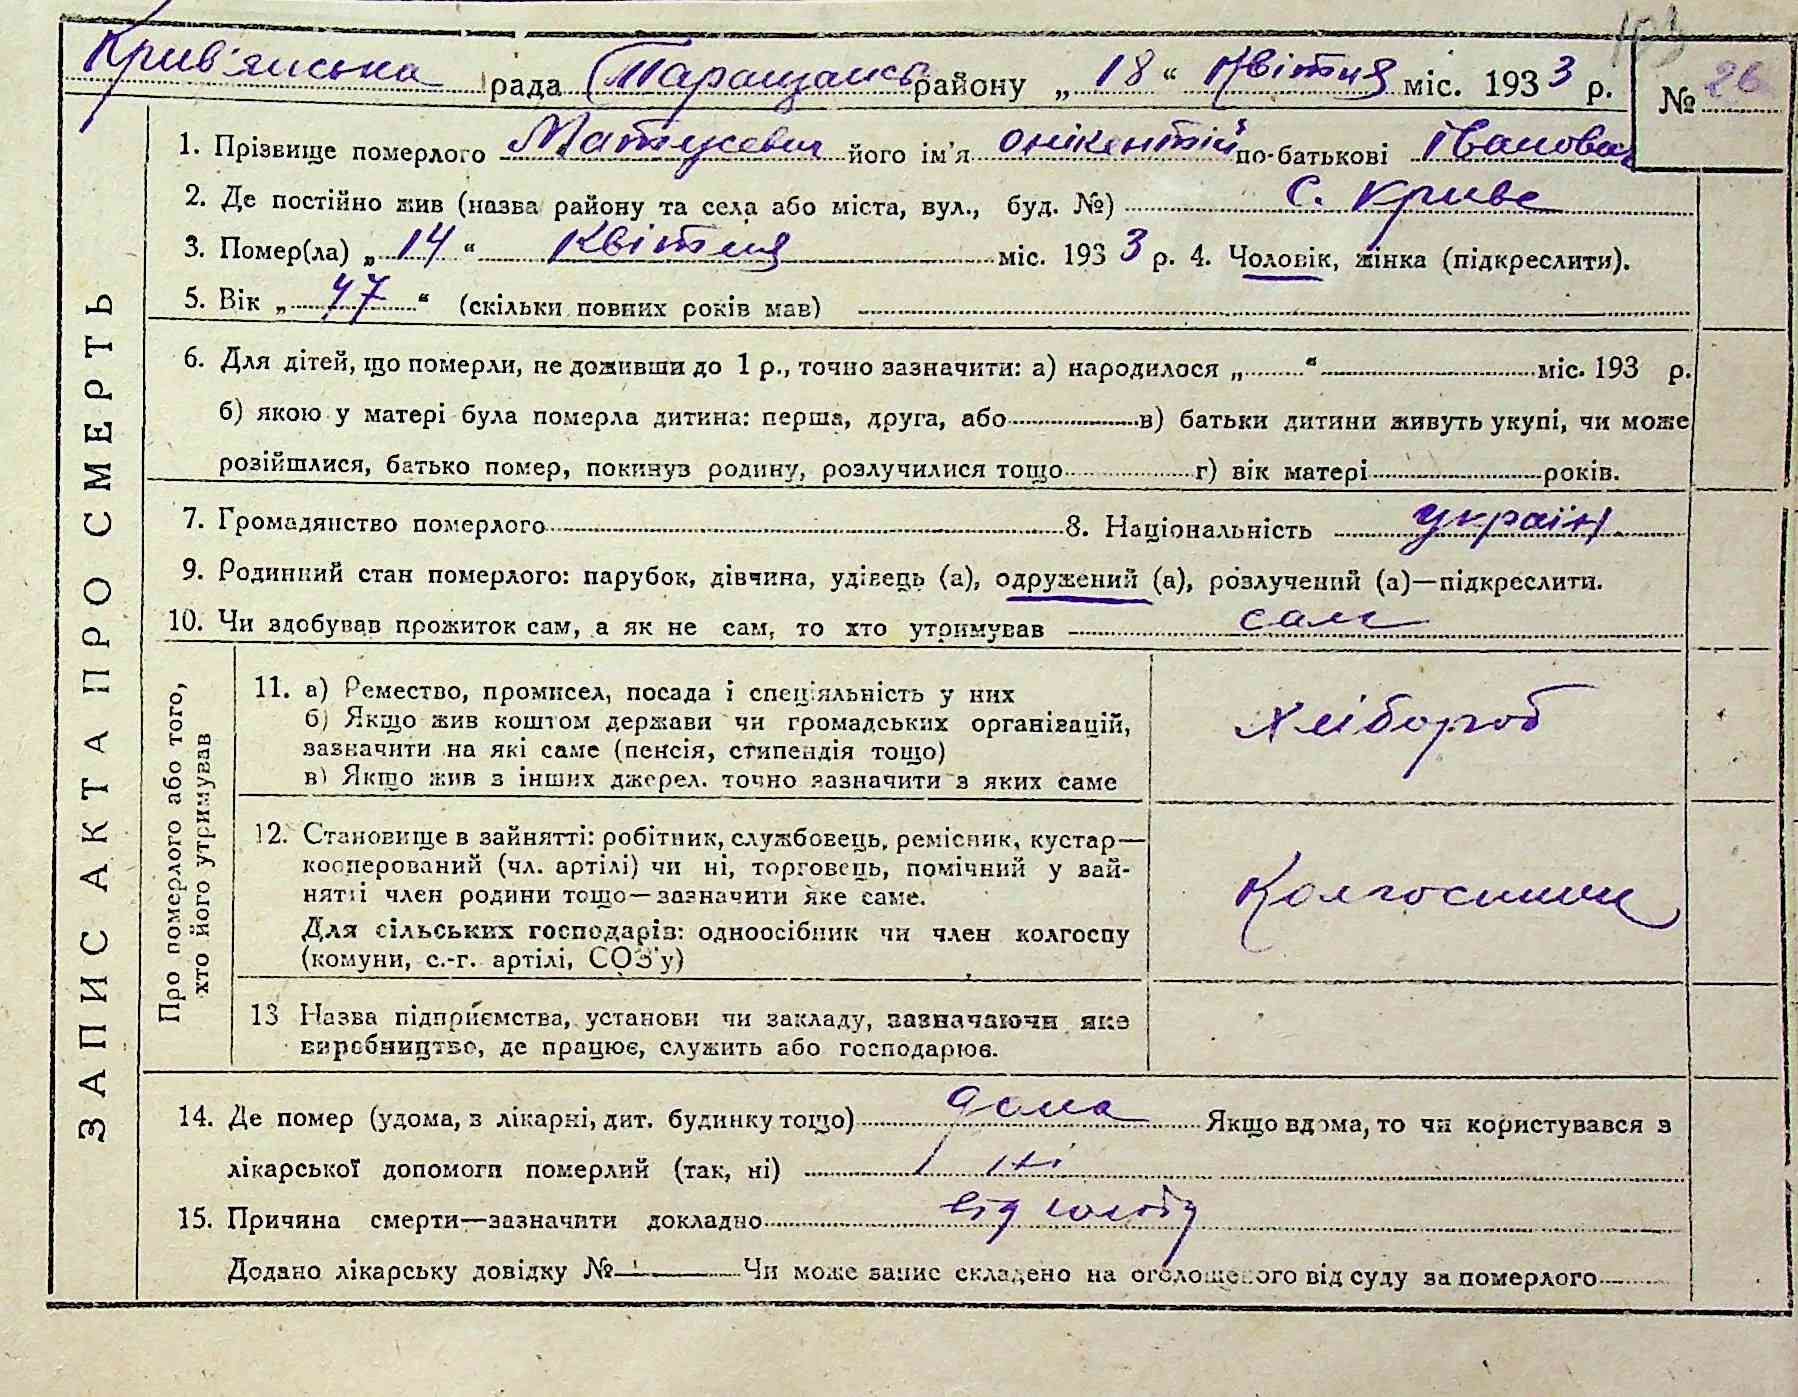 103
Крив'янська рада Таращансь району „18“ Квітня міс. 1933 р. № 26
ЗАПИС АКТА ПРО СМЕРТЬ
1. Прізвище померлого Матусевич його ім'я Онікентій по-батькові Іванович
2. Де постійно жив (назва району та села або міста, вул., буд. №) С. Криве
3. Помер(ла) „14“ Квітня міс. 1933 р. 4. Чоловік, жінка (підкреслити).
5. Вік „47“ (скільки повних років мав)
6. Для дітей, що померли, не доживши до 1 р., точно зазначити: а) народилося „ “ міс. 193 р.
б) якою у матері була померла дитина: перша, друга, або в) батьки дитини живуть укупі, чи може
розійшлися, батько помер, покинув родину, розлучилися тощо г) вік матері років.
7. Громадянство померлого 8. Національність україн.
9. Родинний стан померлого: парубок, дівчина, удівець (а), одружений (а), розлучений (а)—підкреслити.
10. Чи здобував прожиток сам, а як не сам, то хто утримував сам
Про померлого або того,
хто його утримував
11. а) Ремество, промисел, посада і спеціяльність у них
б) Якщо жив коштом держави чи громадських організацій,
зазначити на які саме (пенсія, стипендія тощо)
в) Якщо жив з інших джерел. точно зазначити з яких саме
Хлібороб
12. Становище в зайнятті: робітник, службовець, ремісник, кустар—
кооперований (чл. артілі) чи ні, торговець, помічний у зай-
нятті член родини тощо—зазначити яке саме.
Для сільських господарів: одноосібник чи член колгоспу
(комуни, с.-г. артілі, СОЗ'у)
Колгоспник
13 Назва підприємства, установи чи закладу, зазначаючи яке
виробництво, де працює, служить або господарює.
14. Де помер (удома, в лікарні, дит. будинку тощо) дома Якщо вдома, то чи користувався з
лікарської допомоги померлий (так, ні) ні
15. Причина смерти—зазначити докладно від голоду
Додано лікарську довідку № Чи може запис складено на оголошеного від суду за померлого